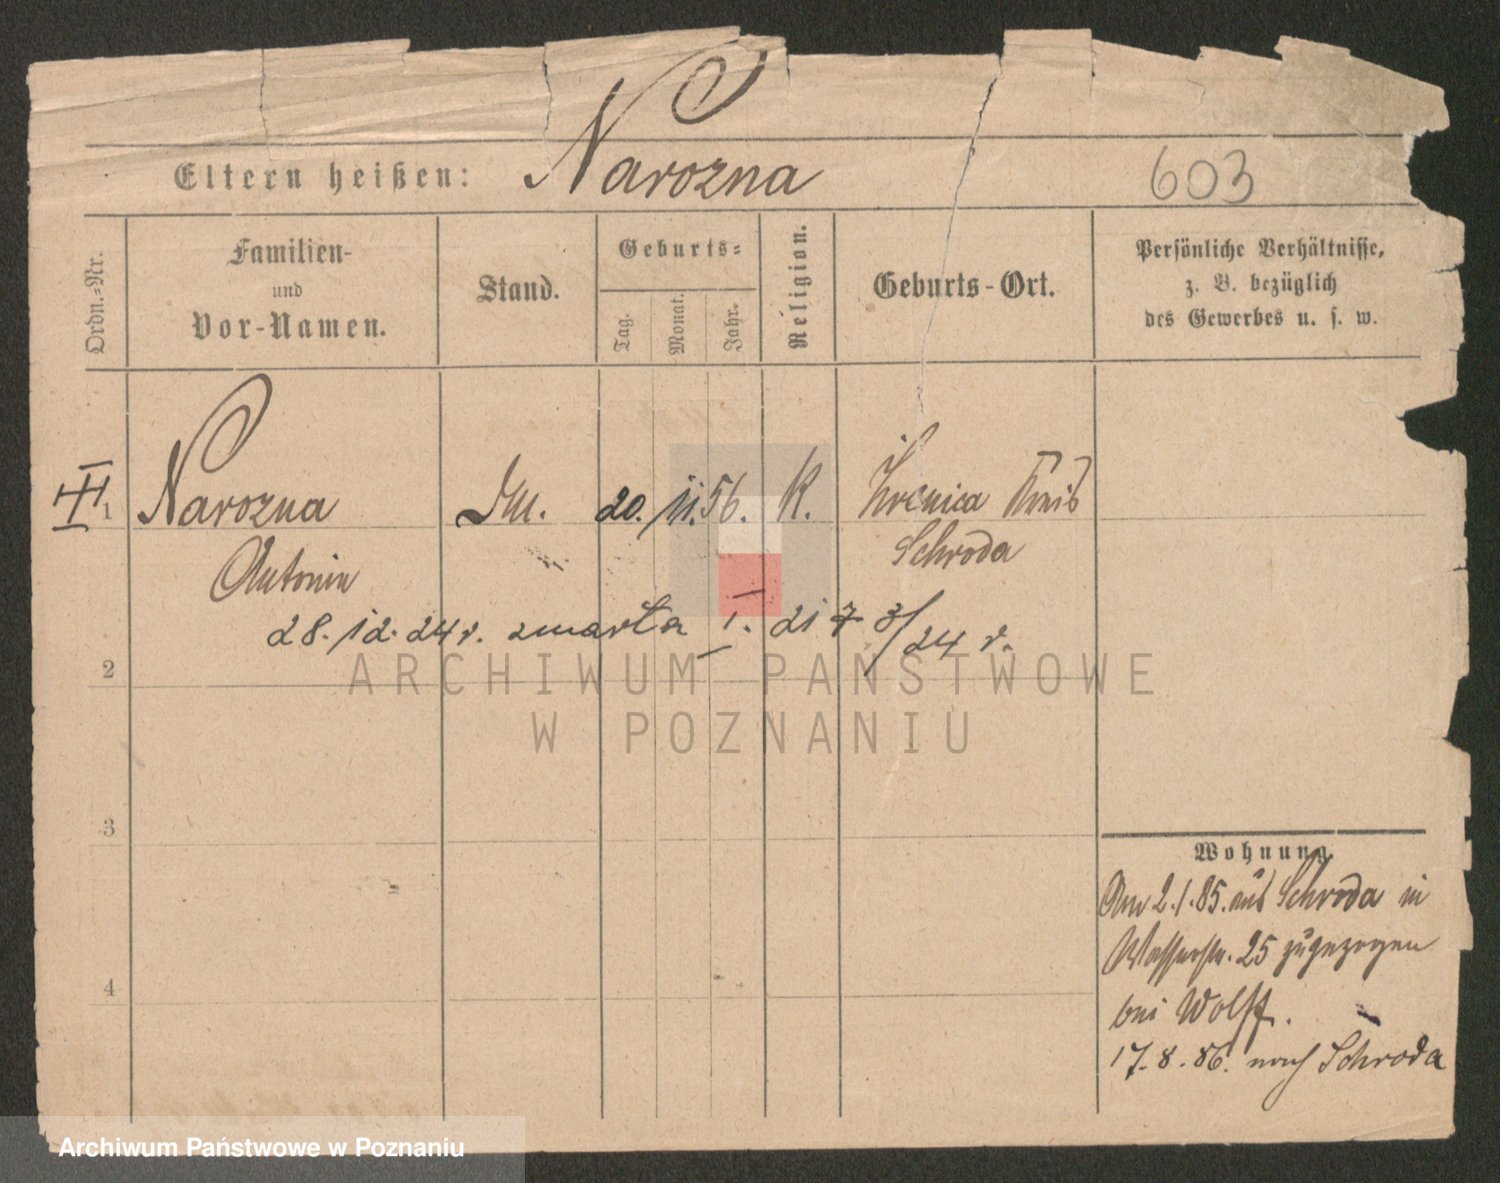 Eltern heißen: Narozna 603
Ordn.-Nr.
Familien-
und
Vor-Namen.
Stand.
Geburts-
Tag.
Monat.
Jahr.
Religion.
Geburts-Ort.
Persönliche Verhältnisse,
z. B. bezüglich
des Gewerbes u. s. w.
1 Narozna 20. 11. 56. K. Krenica Kreis
Antonie Schroda
28. 12. 24 r. zmarła I. 21 7 3/24 r.
2
ARCHIWUM PAŃSTWOWE
W POZNANIU
3
Wohnung
Am 2.1.85. aus Schroda in
Wasserstr. 25 zugezogen
bei Wolff.
4
17.8.86. nach Schroda
Archiwum Państwowe w Poznaniu